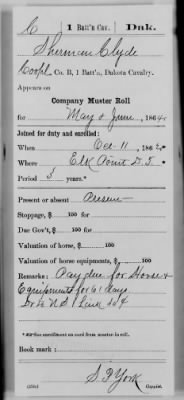 C | 1 Batt'n Cav. | Dak.
Sherman Clyde
Corp'l, Co. B, 1 Batt'n, Dakota Cavalry.
Appears on
Company Muster Roll
for May & June, 1864.
Joined for duty and enrolled:
When Oct 11, 1862*
Where Elk Point D.T.
Period 3 years.*
Present or absent Present
Stoppage, $ 100 for
Due Gov't, $ 100 for
Valuation of horse, $ 100
Valuation of horse equipments, $ 100
Remarks: Pay due for Horse &
Equipments for 61 days
*See enrollment on card from muster-in roll.
Book mark:
S. F. York
Copyist.